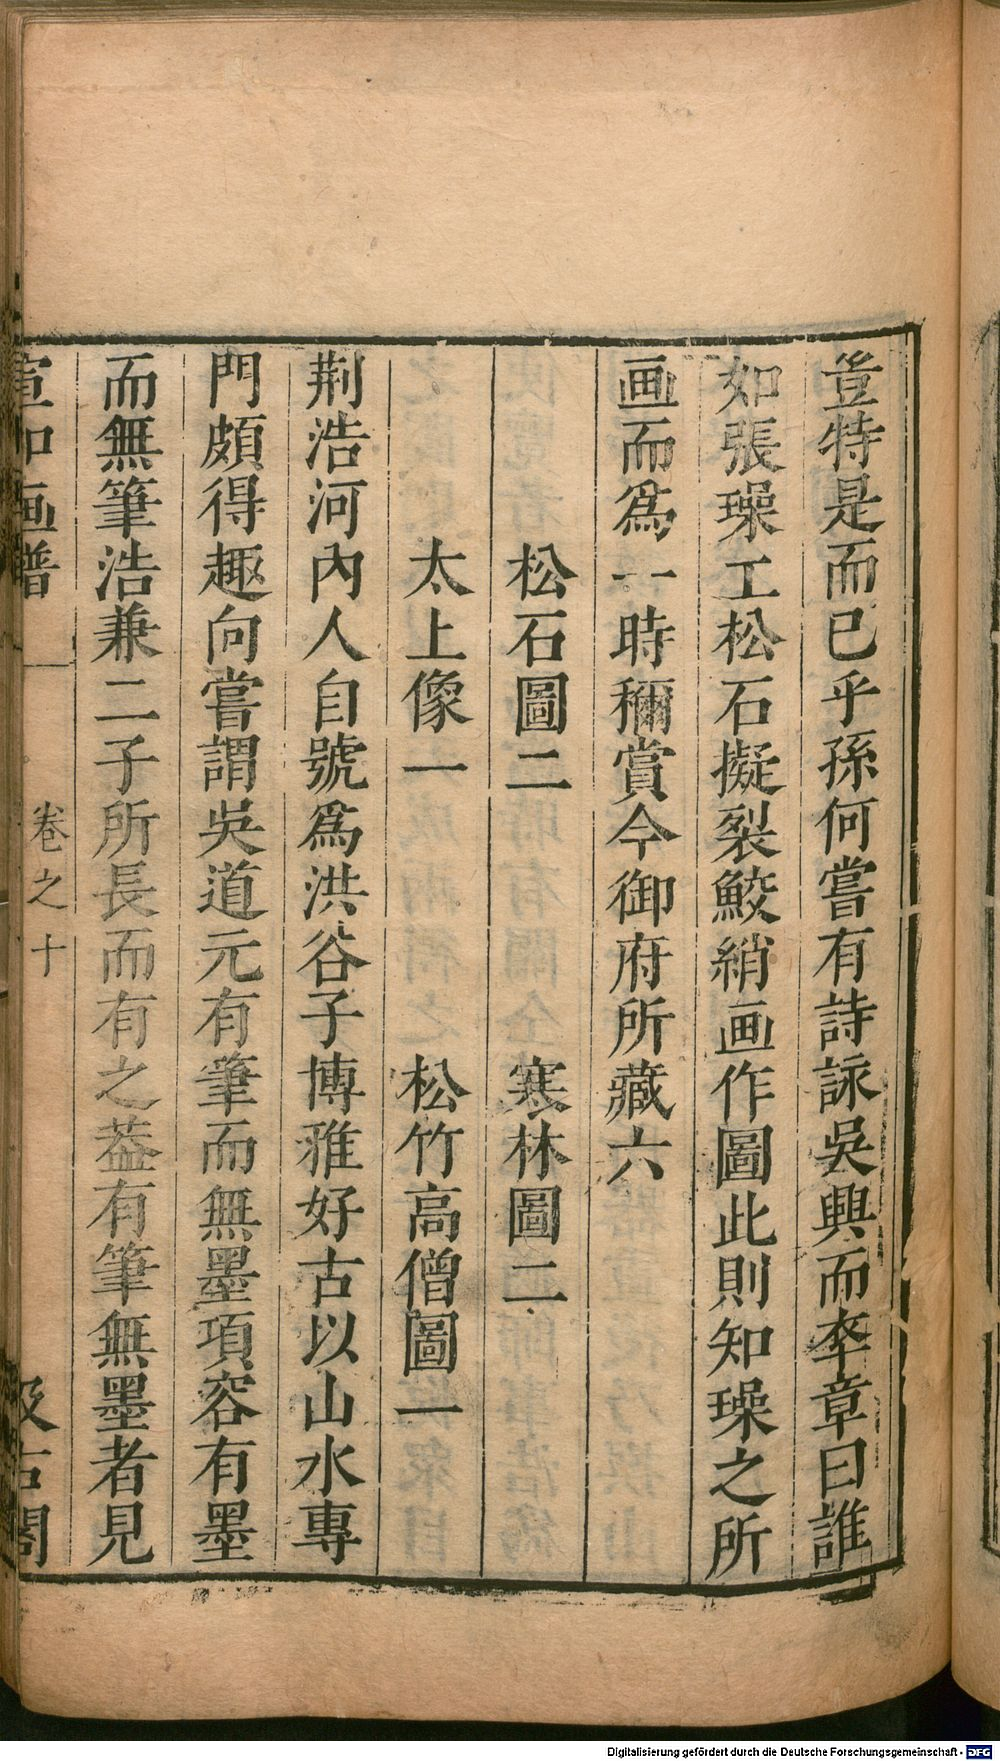 豈特是而已乎孫何嘗有詩詠吳興而卒章曰誰
如張璪工松石擬裂鮫綃画作圖此則知璪之所
画而為一時稱賞今御府所藏六
松石圖二 寒林圖二
太上像一 松竹高僧圖一
荆浩河內人自號為洪谷子博雅好古以山水專
門頗得趣向嘗謂吳道元有筆而無墨項容有墨
而無筆浩兼二子所長而有之葢有筆無墨者見
宣和画譜 卷之十 汲古閣
Digitalisierung gefördert durch die Deutsche Forschungsgemeinschaft - DFG